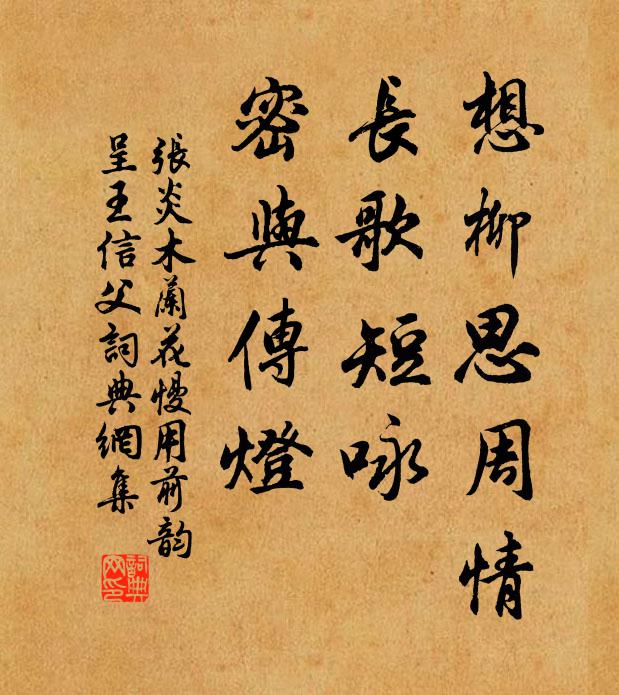 想柳思周情
長歌短咏
密與傳燈
張炎木蘭花慢用前韵
呈王信父詞典網集
詞典
网印